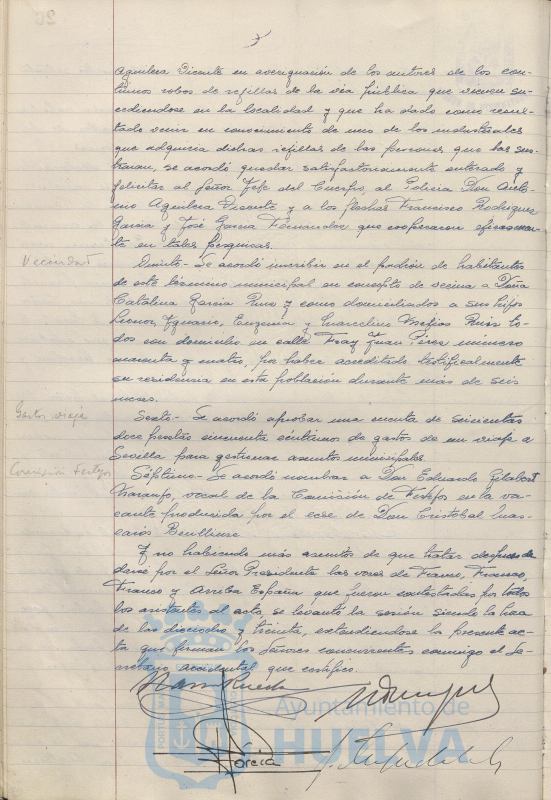 Aguilera Vicente en averiguación de los autores de los con-
tinuos robos de rejillas de la vía pública que vienen su-
cediendose en la localidad y que ha dado como resul-
tado venir en conocimiento de uno de los industriales
que adquiria dichas rejillas de las personas que las sus-
traian, se acordó quedar satisfactoriamente enterado y
felicitar al Señor Jefe del Cuerpo, al Policia Don Anto-
nio Aguilera Vicente y a los flechas Francisco Rodriguez
Garcia y José Garcia Fernandez que cooperaron eficazmen-
te en tales pesquisas.
Vecindad
Quinto - Se acordó inscribir en el padrón de habitantes
de este término municipal en concepto de vecina a Doña
Catalina Garcia y como domiciliados a sus hijos
Leonor, Ignacio, Eugenia y Marcelino Mejias Ruiz to-
dos con domicilio en calle Fray Juan Pérez número
cuarenta y cuatro, por haber acreditado testificalmente
su residencia en esta población durante más de seis
meses.
Gastos viaje
Sexto - Se acordó aprobar una cuenta de seiscientas
doce pesetas cincuenta céntimos de gastos de un viaje a
Sevilla para gestionar asuntos municipales.
Comisión festejos
Séptimo - Se acordó nombrar a Don Eduardo Gilabert
Naranjo, vocal de la Comisión de Festejos en la va-
cante producida por el cese de Don Cristobal
Benlliure
Y no habiendo más asuntos de que tratar despues de
darse por el Señor Presidente las voces de Franco, Franco,
Franco y Arriba España que fueron contestadas por todos
los asistentes al acto, se levantó la sesión siendo la hora
de las dieciocho y treinta, extendiendose la presente ac-
ta que firman los Señores concurrentes conmigo el Se-
cretario accidental, que certifico.
Ayuntamiento de
HUELVA
Garcia